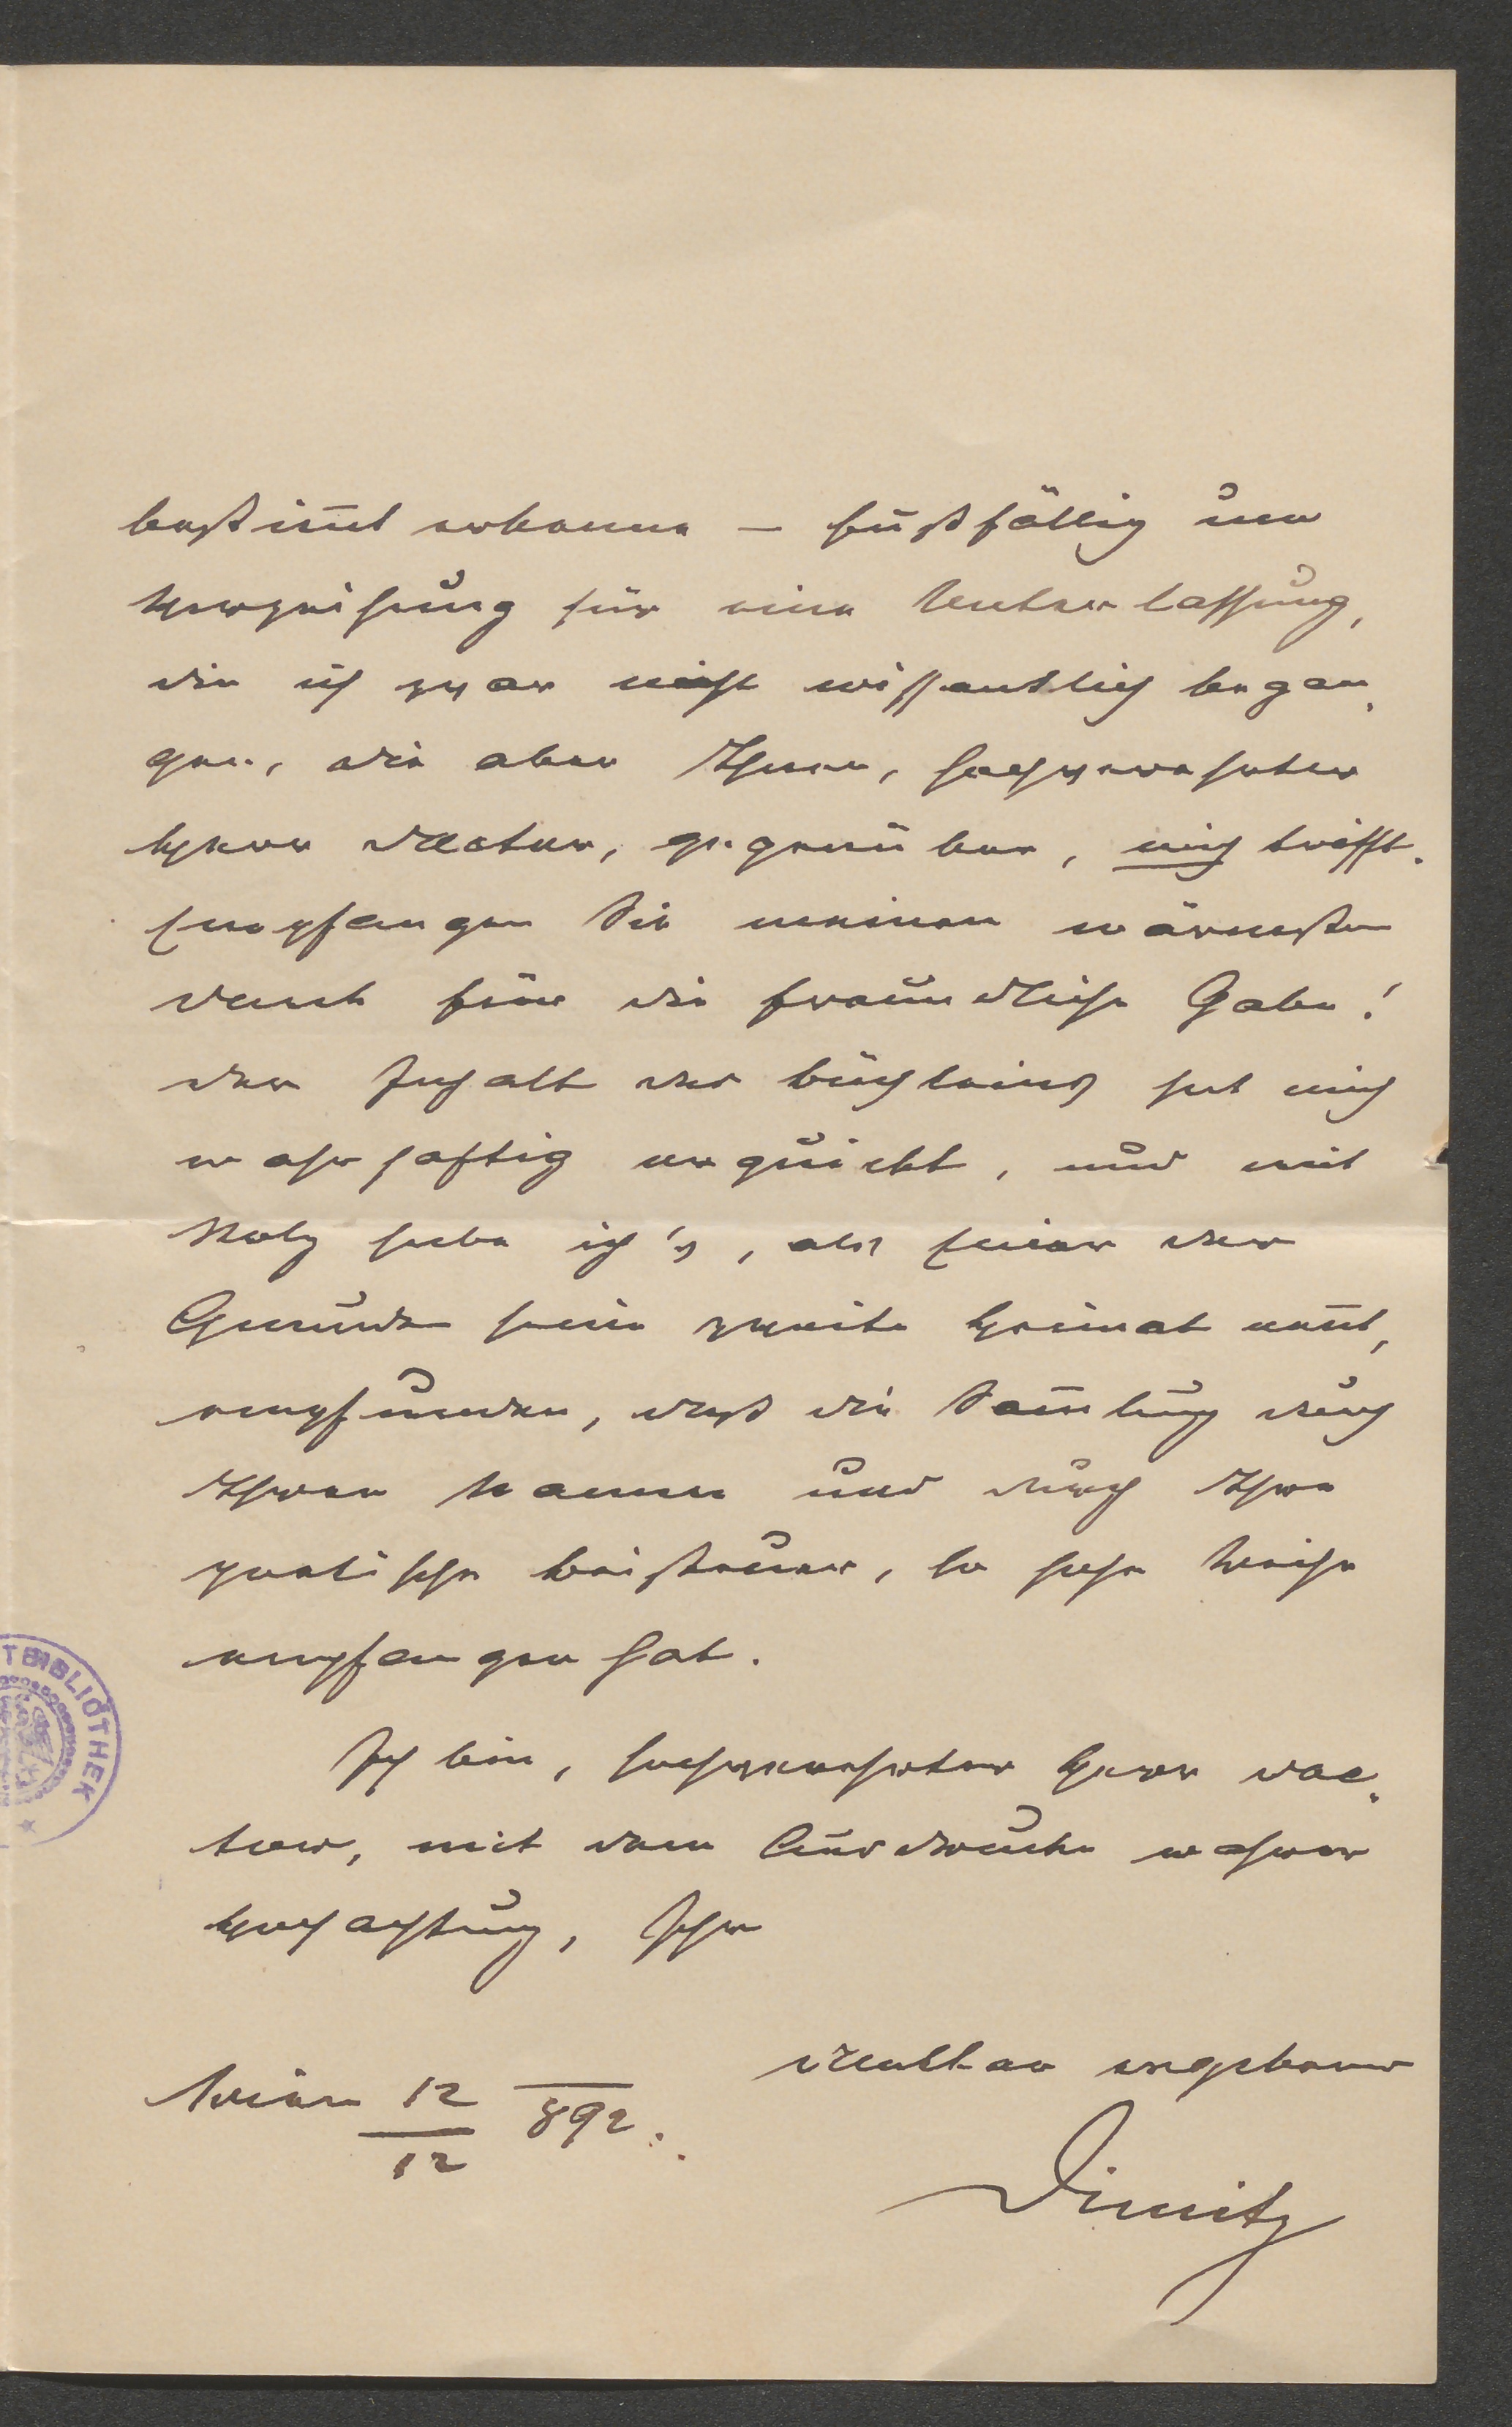 bestim̅t erkenne – fußfällig um
Verzeihung für eine Unterlassung,
die ich zwar nicht wissentlich began-
gen, die aber Ihnen, hochverehrter
Herr Doctor, gegenüber, mich trifft.
Empfangen Sie meinen wärmsten
Dank für die freundliche Gabe!
Der Inhalt des Büchleins hat mich
wahrhaftig erquickt, und mit
Stolz habe ich's, als Einer der
Gmunden seine zweite Heimat nen̅t,
empfunden, daß die Sam̅lung durch
Ihren Namen und durch Ihre
poetischen Beisteuer, so hohe Weihe
empfangen hat.
Ich bin, hochverehrter Herr Doc-
tor, mit dem Ausdrucke wahrer
Hochachtung, Ihr
dankbar ergebener
Wien 12/12 892.
Dimitz
TBIBLIOTHEK